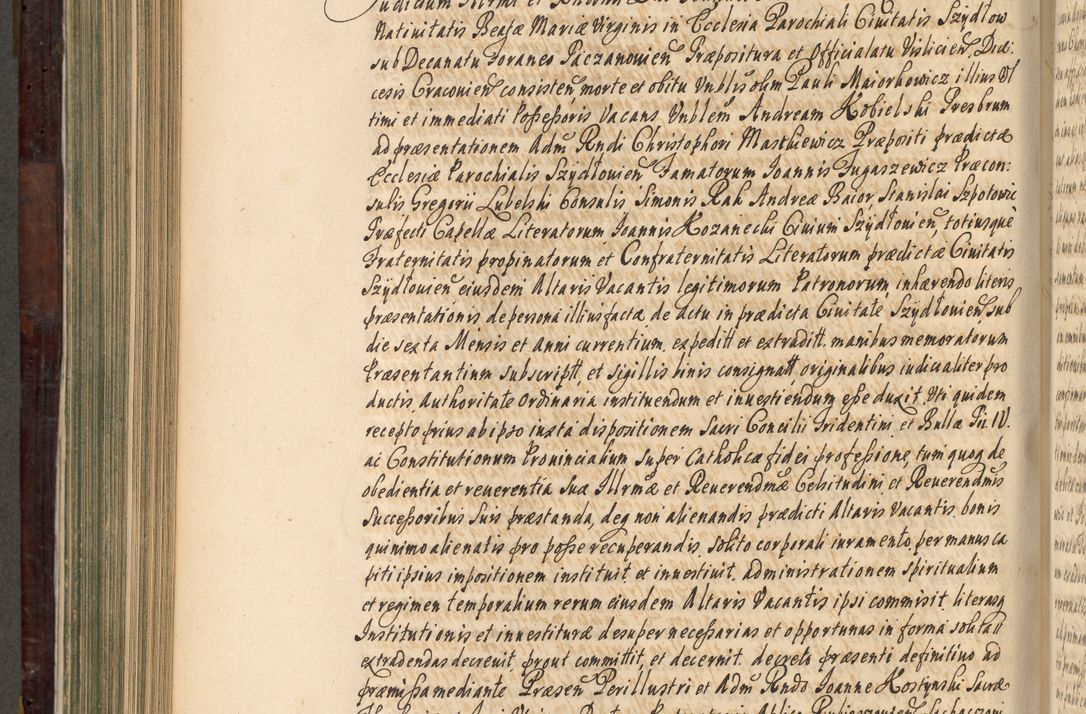 Nativitatis Beatæ Mariæ Virginis in Ecclesia Parochiali Civitatis Szydłow
sub Decanatu Foraneo Paczanovien̄ Præpositura et Officialatu Vislicien̄, Diæ:
cesis Cracovien̄ consisten̄, morte et obitu Vnblis olim Pauli Maiorkowicz illius Vl
timi et immediati Possessoris Vacans Vnblem̄ Andream Kobielski Presbrum
ad præsentationem Adm̄ Rndi Christophori Maskiewicz Præpositi prædictæ
Ecclesiæ Parochialis Szydłovien̄ Famatorum Ioannis Fugaszewicz Præcon:
sulis Gregorii Lubelski Consulis Simonis Rak Andreæ Baior, Stanislai Szpotowic
Præfecti Capellæ Literatorum Joannis Kozanecki Civium Szÿdłovien̄, totiusque
Fraternitatis propinatorum et Confraternitatis Literatorum prædictæ Civitatis
Szÿdłovien̄ eiusdem Altaris Vacantis legitimorum Patronorum, inhærendo literis
præsentationis de persona illius factæ, de actu in prædicta Civitate Szÿdłovien̄ sub
die sexta Mensis et Anni currentium. expeditt et extraditt. manibus memoratorum
Præsentantium subscriptt, et sigillis binis consignatt originalibus iudicialiter pro
ductis. Authoritate Ordinaria instituendum et investiendum esse duxit. Vti quidem
recepto prius ab ipso iuxta dispositionem Sacri Concilii Tridentini, et Bullæ Pii IV.
ac Constitutionum Provincialium super Catholicæ fidei professione, tum quoq de
obedientia et reverentia suæ Illrmæ et Reverendmæ Celsitudini, et Reverendmis
Successoribus suis præstanda, deq non alienandis prædicti Altaris Vacantis. bonis
quinimo alienatis pro posse recuperandis. solito corporali iuramento, per manus ca
piti ipsius impositionem instituit et investivit. administrationem spiritualium
et regimen temporalium rerum eiusdem Altaris Vacantis ipsi commisit, literasq
Institutionis et investituræ desuper necessarias et opportunas in forma solita
extradendas decrevit, prout committit, et decernit. decreto præsenti definitivo ad
præmissa mediante Præsen̄ Perillustri et Adm̄ Rndo Ioanne Kostynski Sacræ